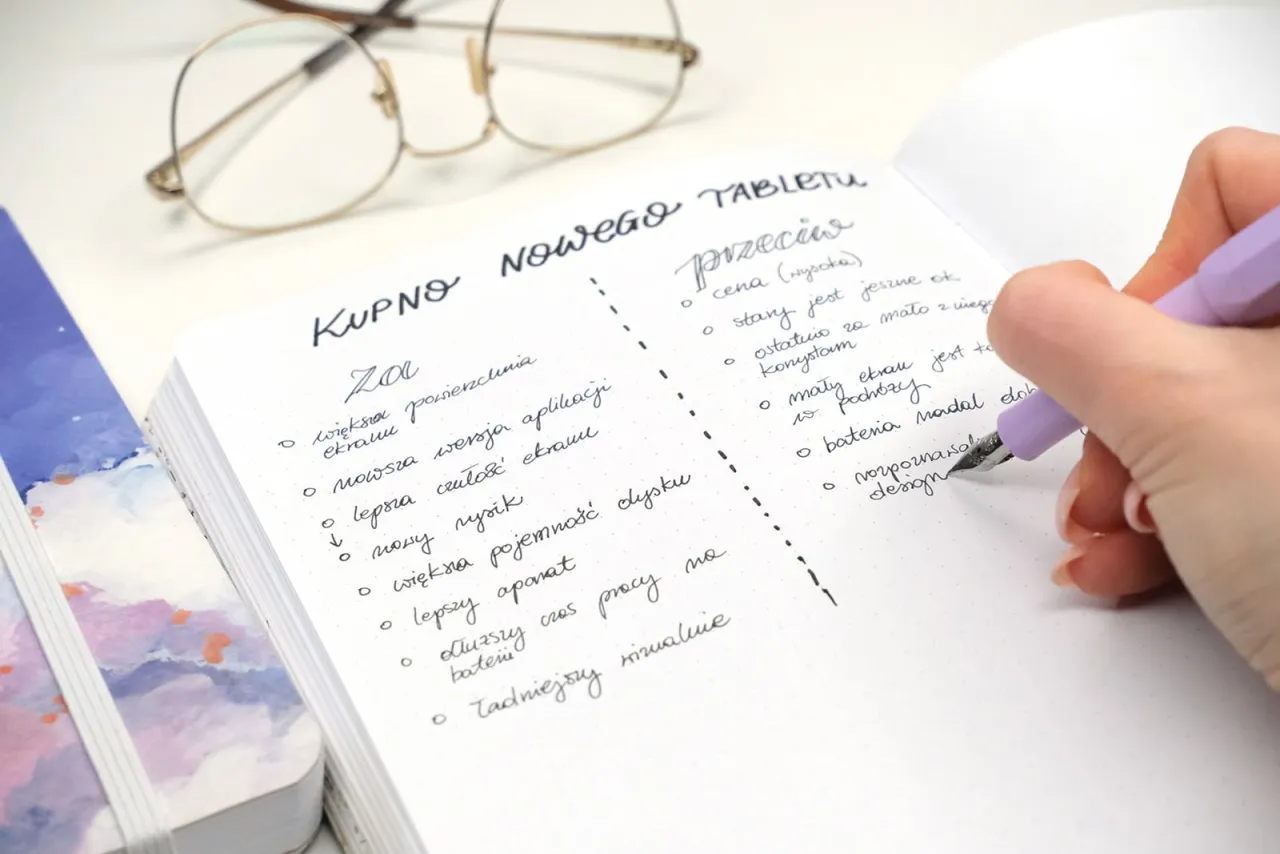 KUPNO NOWEGO TABLETU
za
większa powierzchnia
ekranu
nowsza wersja aplikacji
lepsza czułość ekranu
↓
nowy rysik
większa pojemność dysku
lepszy aparat
dłuższy czas pracy na
baterii
ładniejszy wizualnie
przeciw
cena (wysoka)
stary jest jeszcze ok
ostatnio za mało z niego
korzystam
mały ekran jest
w podróży
bateria nadal
design